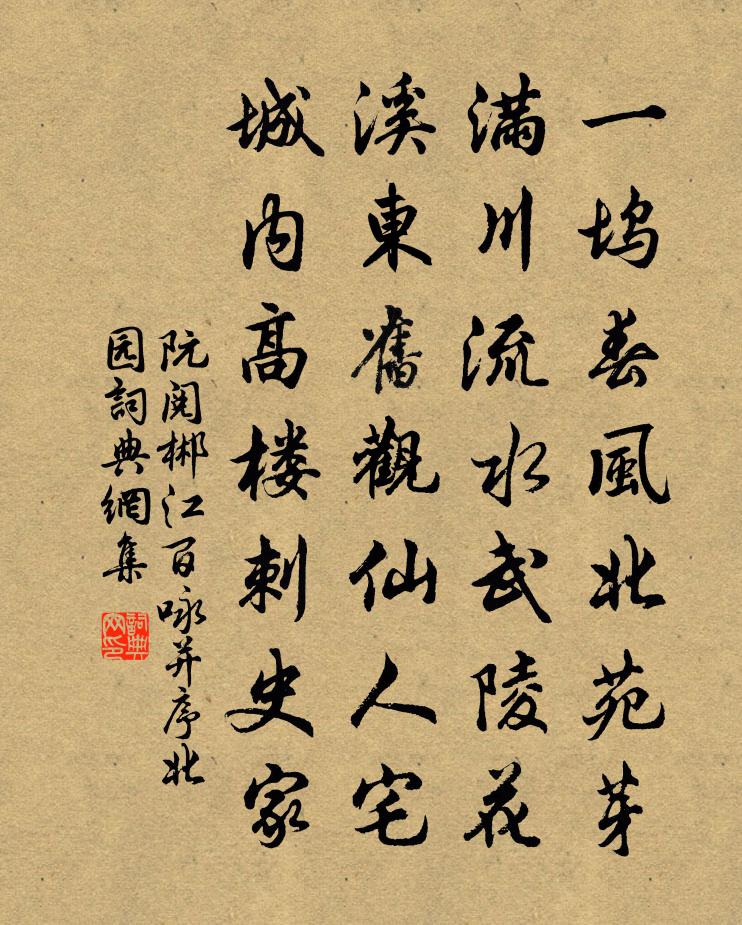 一塢春風北苑芽
滿川流水武陵花
溪東舊觀仙人宅
城内高楼刺史家
阮閱郴江百咏并序北
园詞典網集
詞典网印